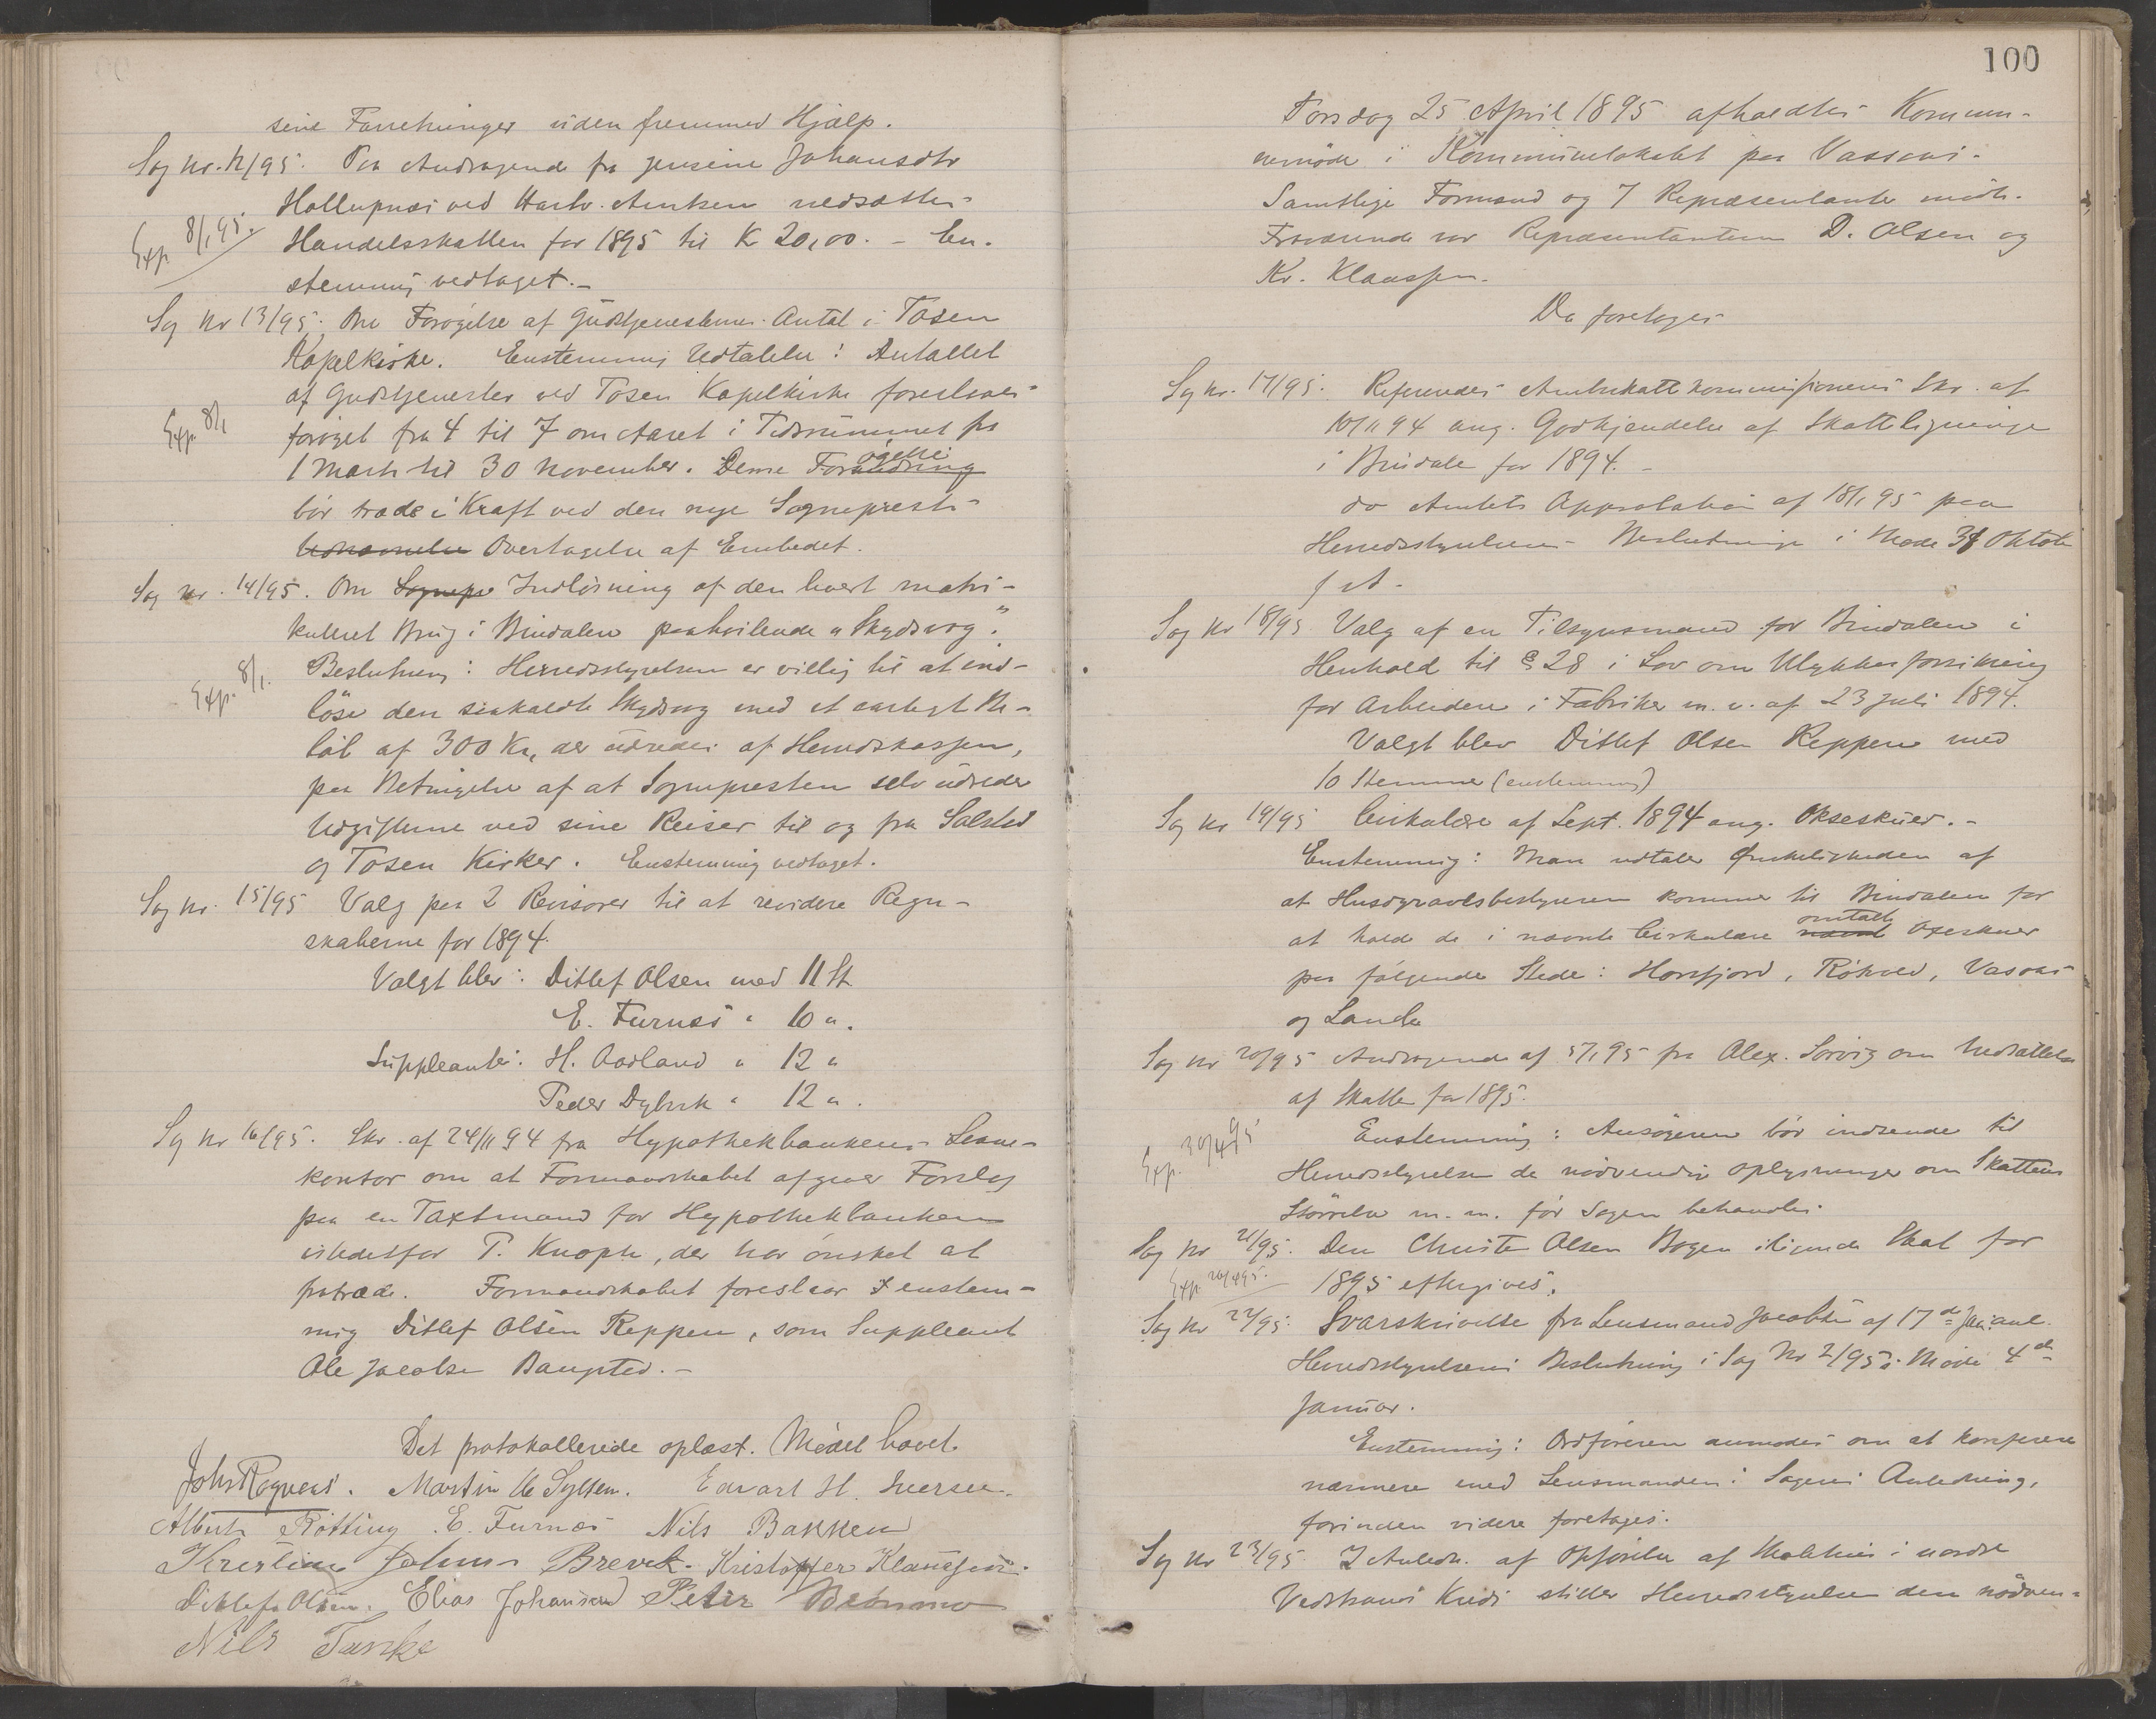 sine Forretninger uden fremmed Hjælp.
Sag nr. 12/95. Paa Andragende fra Jensine Johansdtr
Hollupnæs ved Hartv. Arntsen nedsættes
Exp. 8/1 95.
Handelsskatten for 1895 til Kr 20,00. - En-
stemmig vedtaget. -
Sag nr 13/95. Om Forøgelse af Gudstjenesternes Antal i Tosen
Kapelkirke. Enstemmig Udtalelse: Antallet
af Gudstjenester ved Tosen Kapelkirke foreslaaes
Exp. 8/1
forøget fra 4 til 7 om Aaret i Tidsrummet fra
1 Marts til 30 November. Denne Forandring
øgelse
bör træde i Kraft ved den nye Sogneprests
Udnævnelse Overtagelse af Embedet.
Sag nr. 14/95. Om Sognepr Indlösning af den hvert matri-
kuleret Brug i Bindalen paahvilende "Skydsvog".
Exp. 8/1.
Beslutning: Herredsstyrelsen er villig til at ind-
löse den saakaldte Skydsvog med et aarligt Be-
løb af 300 Kr, der udredes af Herredskassen,
paa Betingelse af at Sognepresten selv udreder
Udgifterne ved sine Reiser til og fra Solstad
og Tosen Kirker. Enstemmig vedtaget.
Sag nr. 15/95 Valg paa 2 Revisorer til at revidere Regn-
skaberne for 1894.
Valgt blev: Ditlef Olsen med 11 St
E. Furnæs " 10 ".
Suppleanter: H. Aarland " 12 "
Peder Dybvik " 12 ".
Sag nr 16/95. Skr. af 24/11 94 fra Hypothekbankens Laane-
kontor om at Formandskabet afgiver Forslag
paa en Taxtmand for Hypothekbanken
istedetfor P. Knoph, der har ønsket at
fratræde. Formandskabet foreslaar enstem-
mig Ditlef Olsen Reppen, som Suppleant
Ole Jacobsen Bangsted. -
Det protokollerede oplæst. Mödet hævet.
Martin Sylten. Edvart H. Iversen.
Albert Røtting. E. Furnæs Nils Bakken
Kristian Johns Brevik. Kristoffer Klaussen.
Ditlef Olsen. Elias Johansen Peter
Nils
100
Torsdag 25 April 1895 afholdtes Kommu-
nemöde i Kommunelokalet paa Vassaas.
Samtlige Formænd og 7 Repræsentanter mödte.
Fraværende var Repræsentanterne D. Olsen og
Kr. Klaussen.
Da foretoges
Sag nr. 17/95. Refereredes Amtsskattekommissionens Skr. af
10/11 94 ang. Godkjendelse af Skatteligninge
i Bindalen for 1894. -
do Amtets Approbation af 18/1 95 paa
Herredsstyrelsens Beslutninger i Møde 31 Oktob
f. A.
Sag nr 18/95 Valg af en Tilsynsmand for Bindalen i
Henhold til § 28 i Lov om Ulykkesforsikring
for Arbeidere i Fabriker m. v. af 23 Juli 1894.
Valgt blev Ditlef Olsen Reppen med
10 Stemmer (enstemmig)
Sag nr 19/95 Cirkulære af Sept. 1894 ang. Okseskuer. -
Enstemmig: Man udtaler Ønskeligheden af
at Husdyravlsbestyreren kommer til Bindalen for
at holde de i nævnte Cirkulære nævnt Oxeskuer
omtalte
paa følgende Steder: Horsfjord, Røkved, Vasaas
og Lande
Sag nr 20/95 Andragende af 5/1 95 fra Alex. Sørvig om Nedsættelse
af Skatten for 1895.
Exp. 30/4 95
Enstemmig: Ansøgeren bör indsende til
Herredsstyrelsen de nödvendige Oplysninger om Skattens
Störrelse m. m. för Sagen behandles.
Sag nr 21/95. Den Christen Olsen Bogen iligende Skat for
Exp. 30/4 95.
1895 eftergives.
Sag nr 22/95: Svarskrivelse fra Lensmand Jacobsen af 17de Jan. anl.
Herredsstyrelsens Beslutning i Sag Nr 2/95 i Møde 4de
Januar.
Enstemmig: Ordføreren anmodes om at konferere
nærmere med Lensmanden i Sagens Anledning,
forinden videre foretages.
Sag nr 23/95. I Anledn. af Opførelse af Skolehus i nordre
Vedstraums Kreds stiller Herredsstyrelsen den nødven-